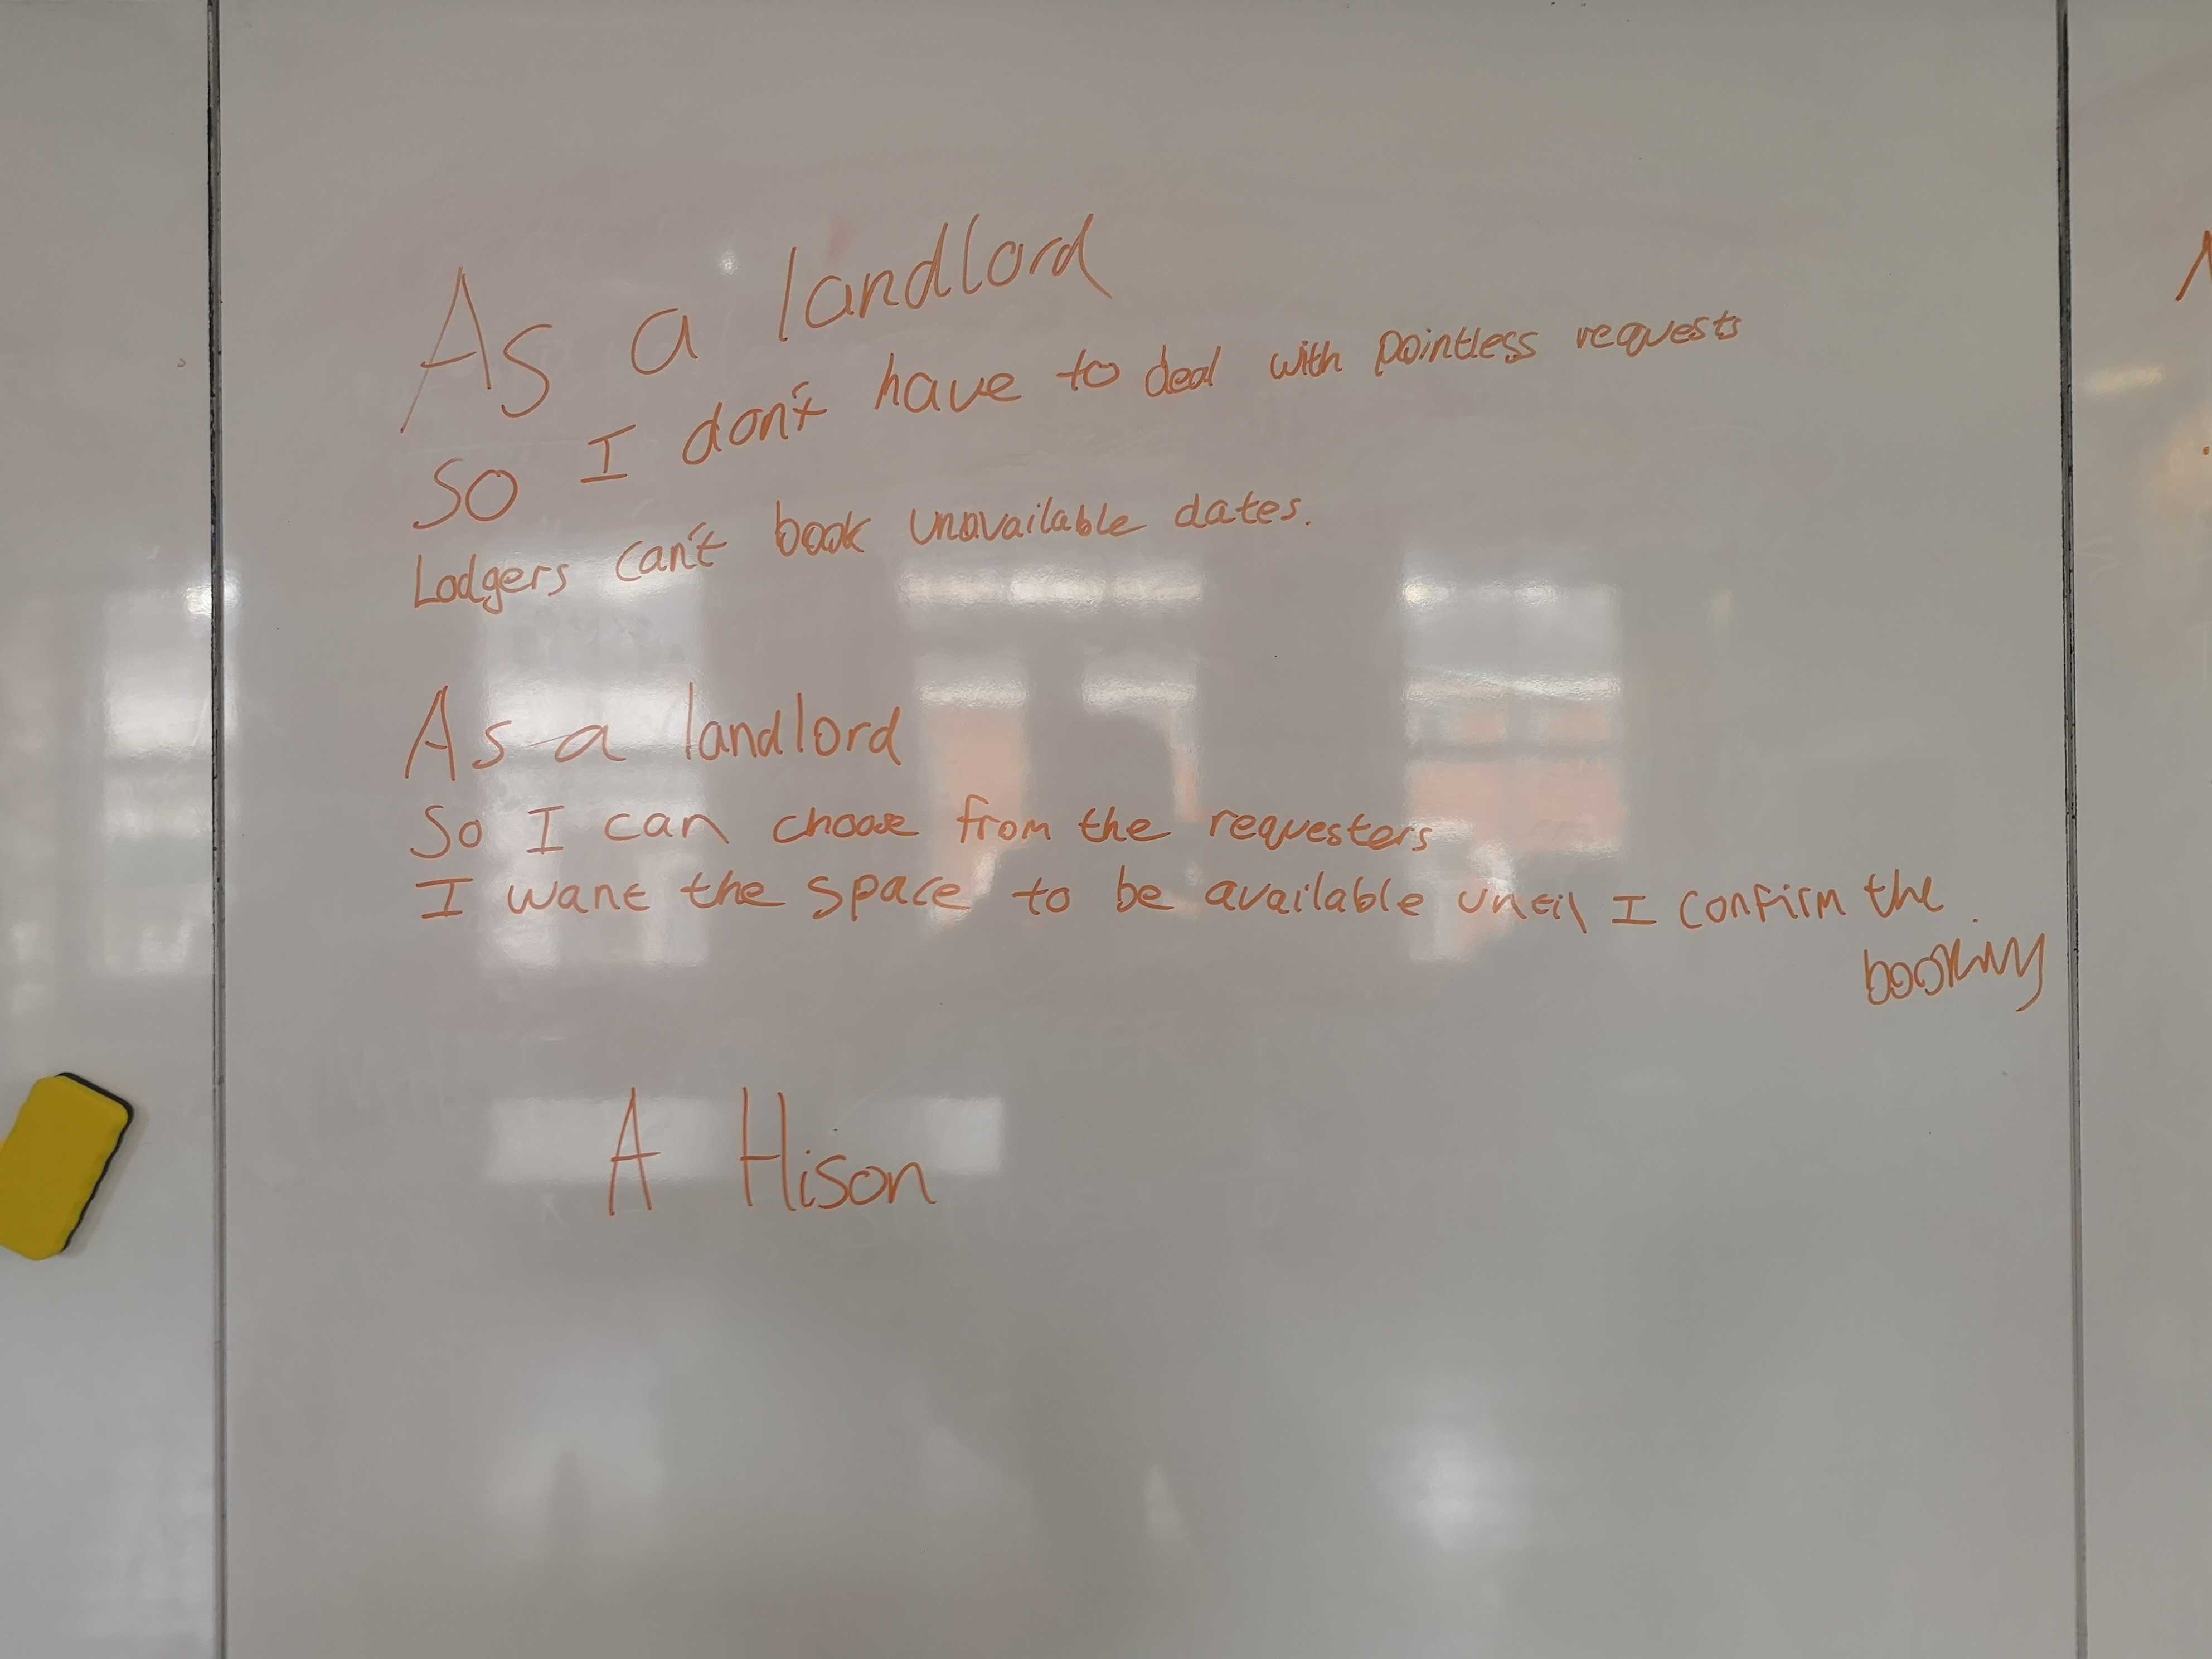 As a landlord
So I don't have to deal with pointless requests
Lodgers can't book unavailable dates.
As a landlord
So I can choose from the requesters
I want the space to be available until I confirm the
booking
A Hison